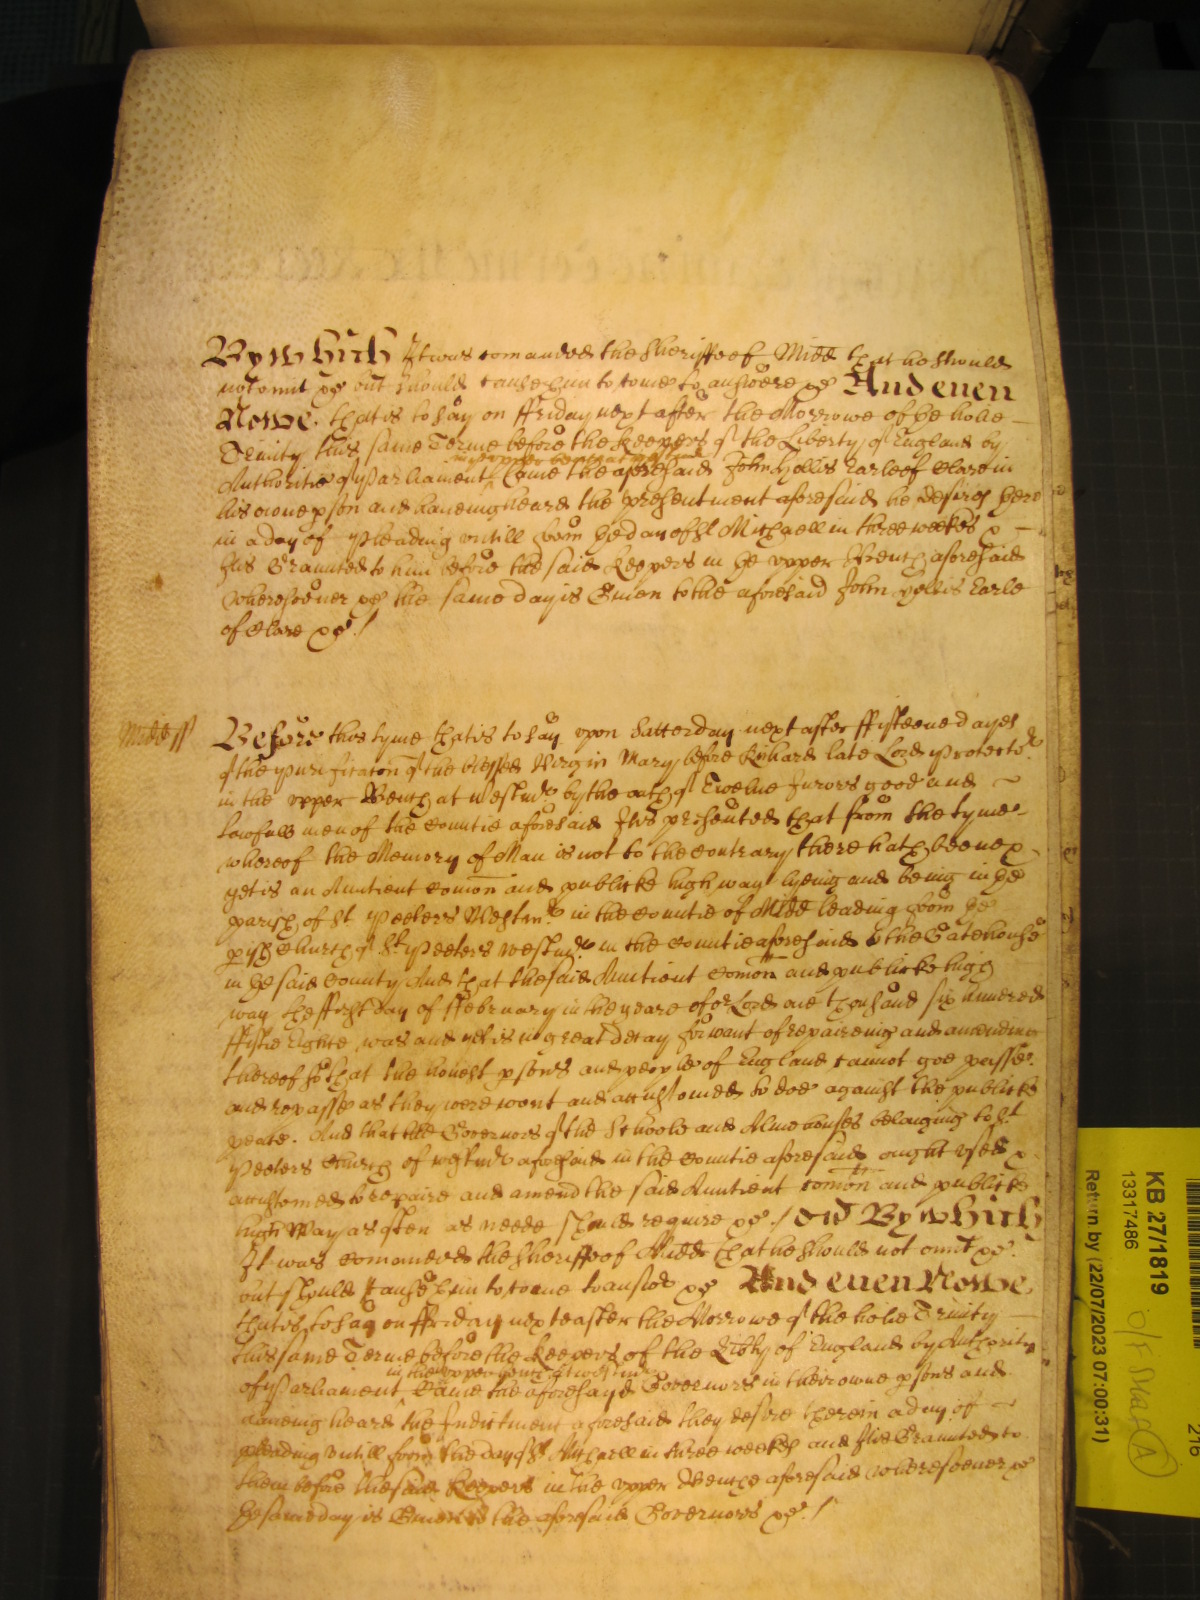 By which It was comanded the Sheriffe of Midd that he should
not omit &c but should cause him to come to answere &c And even
Nowe that is to say on ffriday next after the Morrowe of the holie
Trinity this same Terme before the Keepers of the Liberty of England by
in the upper bench at Westmr
Authoritie of Parliament Came the aforesaid John Hollis Earle of Clare in
his owne pson and haveing heard the presentment aforesaid he desires here
in a day of pleading untill from the day of St Michaell in three weekes &
Itts Graunted to him before the said Keepers in the upper Bench aforesaid
wheresoever &c the same day is Given to the aforesaid John Hollis Earle
of Clare &c /
Midd ss Before this tyme that is to say upon Satterday next after ffifteene dayes
of the Purificaton of the blessed Virgin Mary before Richard late Lord Protector
in the upper Bench at Westmr by the oath of Twelve Jurors good and
lawfull men of the Countie aforesaid Itts presented that from the tyme
whereof the Memory of Man is not to the contrary there hath beene &
yet is an Auntient comon and publicke high way lyeing and being in the
parish of St Peeters Westmr in the Countie of Midd leading from the
pish Church of St Peeters Westmr in the Countie aforesaid to the Gatehouse
in the said County And that the said Auntient comon and publicke high
way the first day of ffebruary in the yeare of or Lord one thousand six hundred
ffiftie Eighte was and yet is in great decay for want of repaireing and amending
thereof so that the honest psons and people of England cannot goe passe
and repasse as they were wont and accustomed to doe against the publicke
peace. And that the Governors of the Schoole and Almehouses belonging to St
Peeters Church of Westmr aforesaid in the Countie aforesaid ought used &
accustomed to repaire and amend the said Auntient comon and publicke
high Way as often as neede should require &c / By which
It was comanded the Sheriffe of Midd that he should not omit &c
but should cause him to come to answe &c And even Nowe
that is to say on ffriday next after the Morrowe of the holie Trinity
this same Terme before the Keepers of the Libty of England by Authority
in the upper bench at Westmr
of Parliament Came the aforesayd Governors in their owne psons and
haveing heard the Indictment aforesaid they desire therein a day of
pleading untill from the day of St Michaell in three weekes and Itts Graunted to
them before the said Keepers in the upper Bench aforesaid wheresoever &c
the same day is Given to the aforesaid Governors &c /
KB 27/1819
13317486
Return by (22/07/2023 07:00:31)